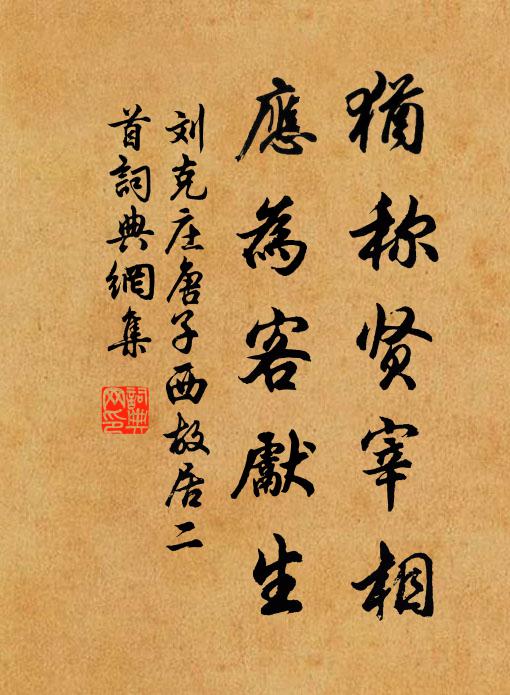 猶称贤宰相
應為客獻生
刘克庄唐子西故居二
首詞典網集
詞典
网印